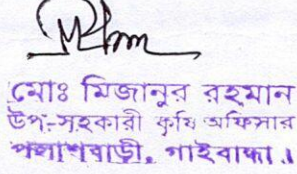 মোঃ মিজানুর রহমান
উপ-সহকারী কৃষি অফিসার
পলাশবাড়ী, গাইবান্ধা।